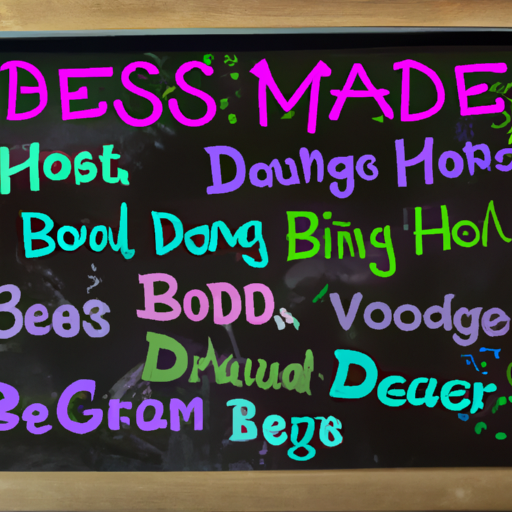 DESS MADE
Host. Daungs Hops
Bood Dong Biing Hon
Bees BODD. Voodge
Drauud. Deaer
BeGram Begs